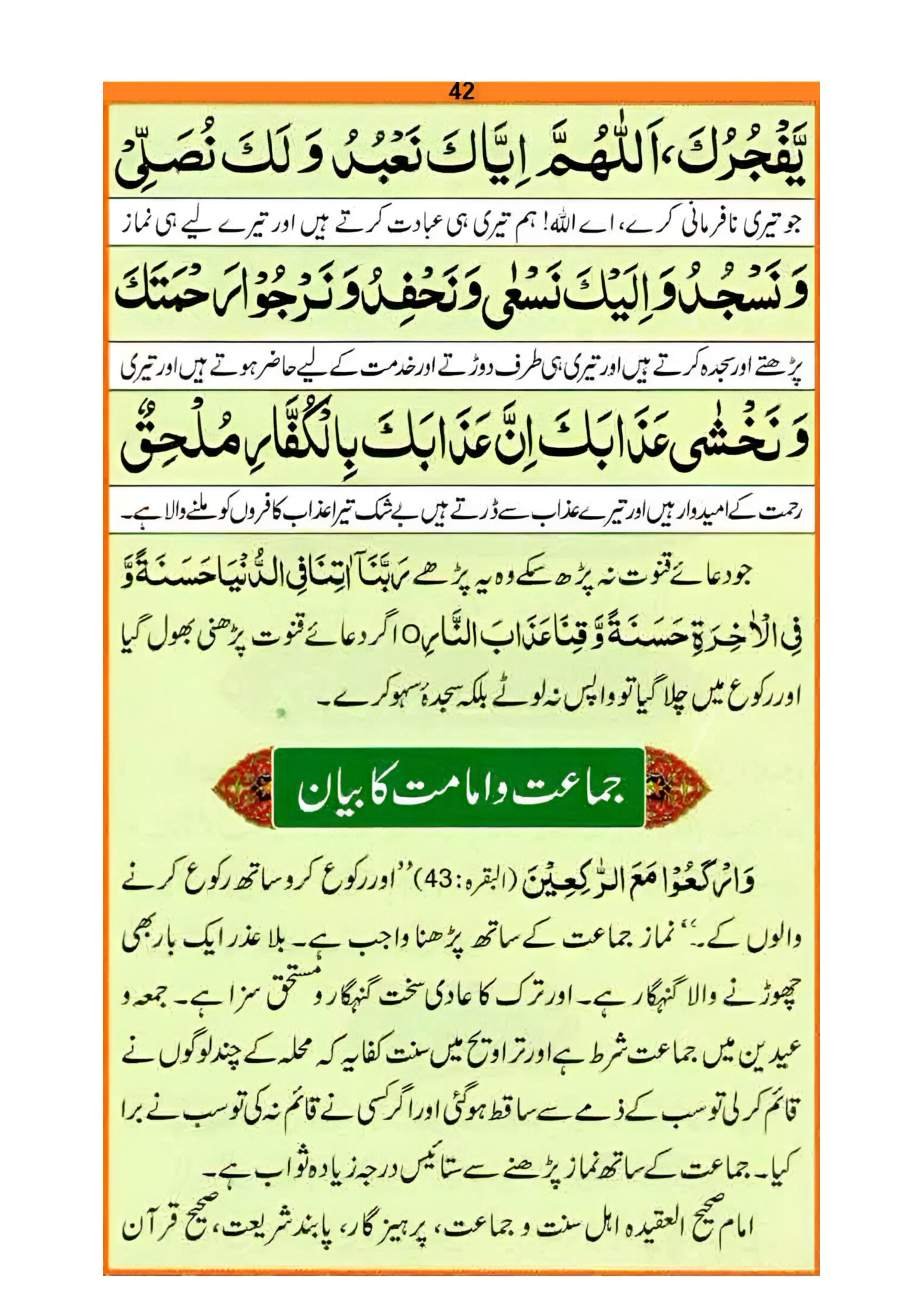 42
يَّفْجُرُكَ، اَللّٰهُمَّ اِيَّاكَ نَعْبُدُ وَ لَكَ نُصَلِّيْ
جو تیری نافرمانی کرے، اے اللہ! ہم تیری ہی عبادت کرتے ہیں اور تیرے لیے ہی نماز
وَ نَسْجُدُ وَ اِلَيْكَ نَسْعٰى وَ نَحْفِدُ وَ نَرْجُوْا رَحْمَتَكَ
پڑھتے اور سجدہ کرتے ہیں اور تیری ہی طرف دوڑتے اور خدمت کے لیے حاضر ہوتے ہیں اور تیری
وَ نَخْشٰى عَذَابَكَ اِنَّ عَذَابَكَ بِالْكُفَّارِ مُلْحِقٌ
رحمت کے امیدوار ہیں اور تیرے عذاب سے ڈرتے ہیں بے شک تیرا عذاب کافروں کو ملنے والا ہے۔
جو دعائے قنوت نہ پڑھ سکے وہ یہ پڑھے رَبَّنَآ اٰتِنَا فِي الدُّنْيَا حَسَنَةً وَّ
فِي الْاٰخِرَةِ حَسَنَةً وَّ قِنَا عَذَابَ النَّارِ ○ اگر دعائے قنوت پڑھنی بھول گیا
اور رکوع میں چلا گیا تو واپس نہ لوٹے بلکہ سجدۂ سہو کرے۔
جماعت و امامت کا بیان
وَارْكَعُوْا مَعَ الرّٰكِعِيْنَ (البقرہ:43) ”اور رکوع کرو ساتھ رکوع کرنے
والوں کے۔“ نماز جماعت کے ساتھ پڑھنا واجب ہے۔ بلا عذر ایک بار بھی
چھوڑنے والا گنہگار ہے۔ اور ترک کا عادی سخت گنہگار و مستحق سزا ہے۔ جمعہ و
عیدین میں جماعت شرط ہے اور تراویح میں سنت کفایہ کہ محلہ کے چند لوگوں نے
قائم کر لی تو سب کے ذمے سے ساقط ہوگئی اور اگر کسی نے قائم نہ کی تو سب نے برا
کیا۔ جماعت کے ساتھ نماز پڑھنے سے ستائیس درجہ زیادہ ثواب ہے۔
امام صحیح العقیدہ اہل سنت و جماعت، پرہیزگار، پابند شریعت، صحیح قرآن